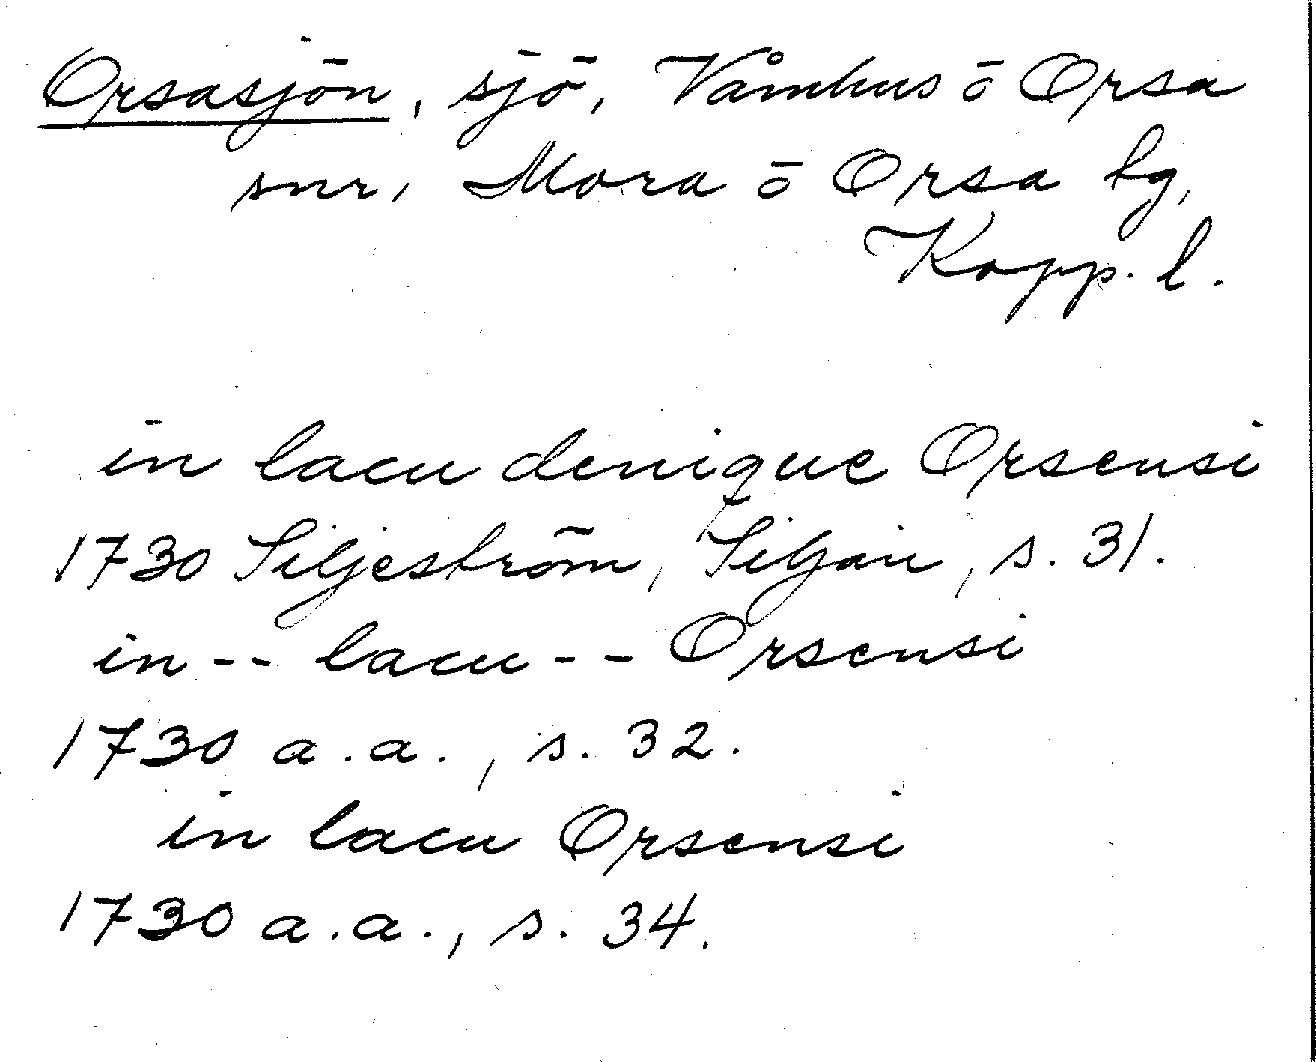 Orsasjön, sjö, Våmhus ö Orsa
snr, Mora ö Orsa bg,
Kopp. l.
in lacu denique Orsensi
1730 Siljeström, Siljan, s. 31.
in -- lacu -- Orsensi
1730 a.a., s. 32.
in lacu Orsensi
1730 a.a., s. 34.